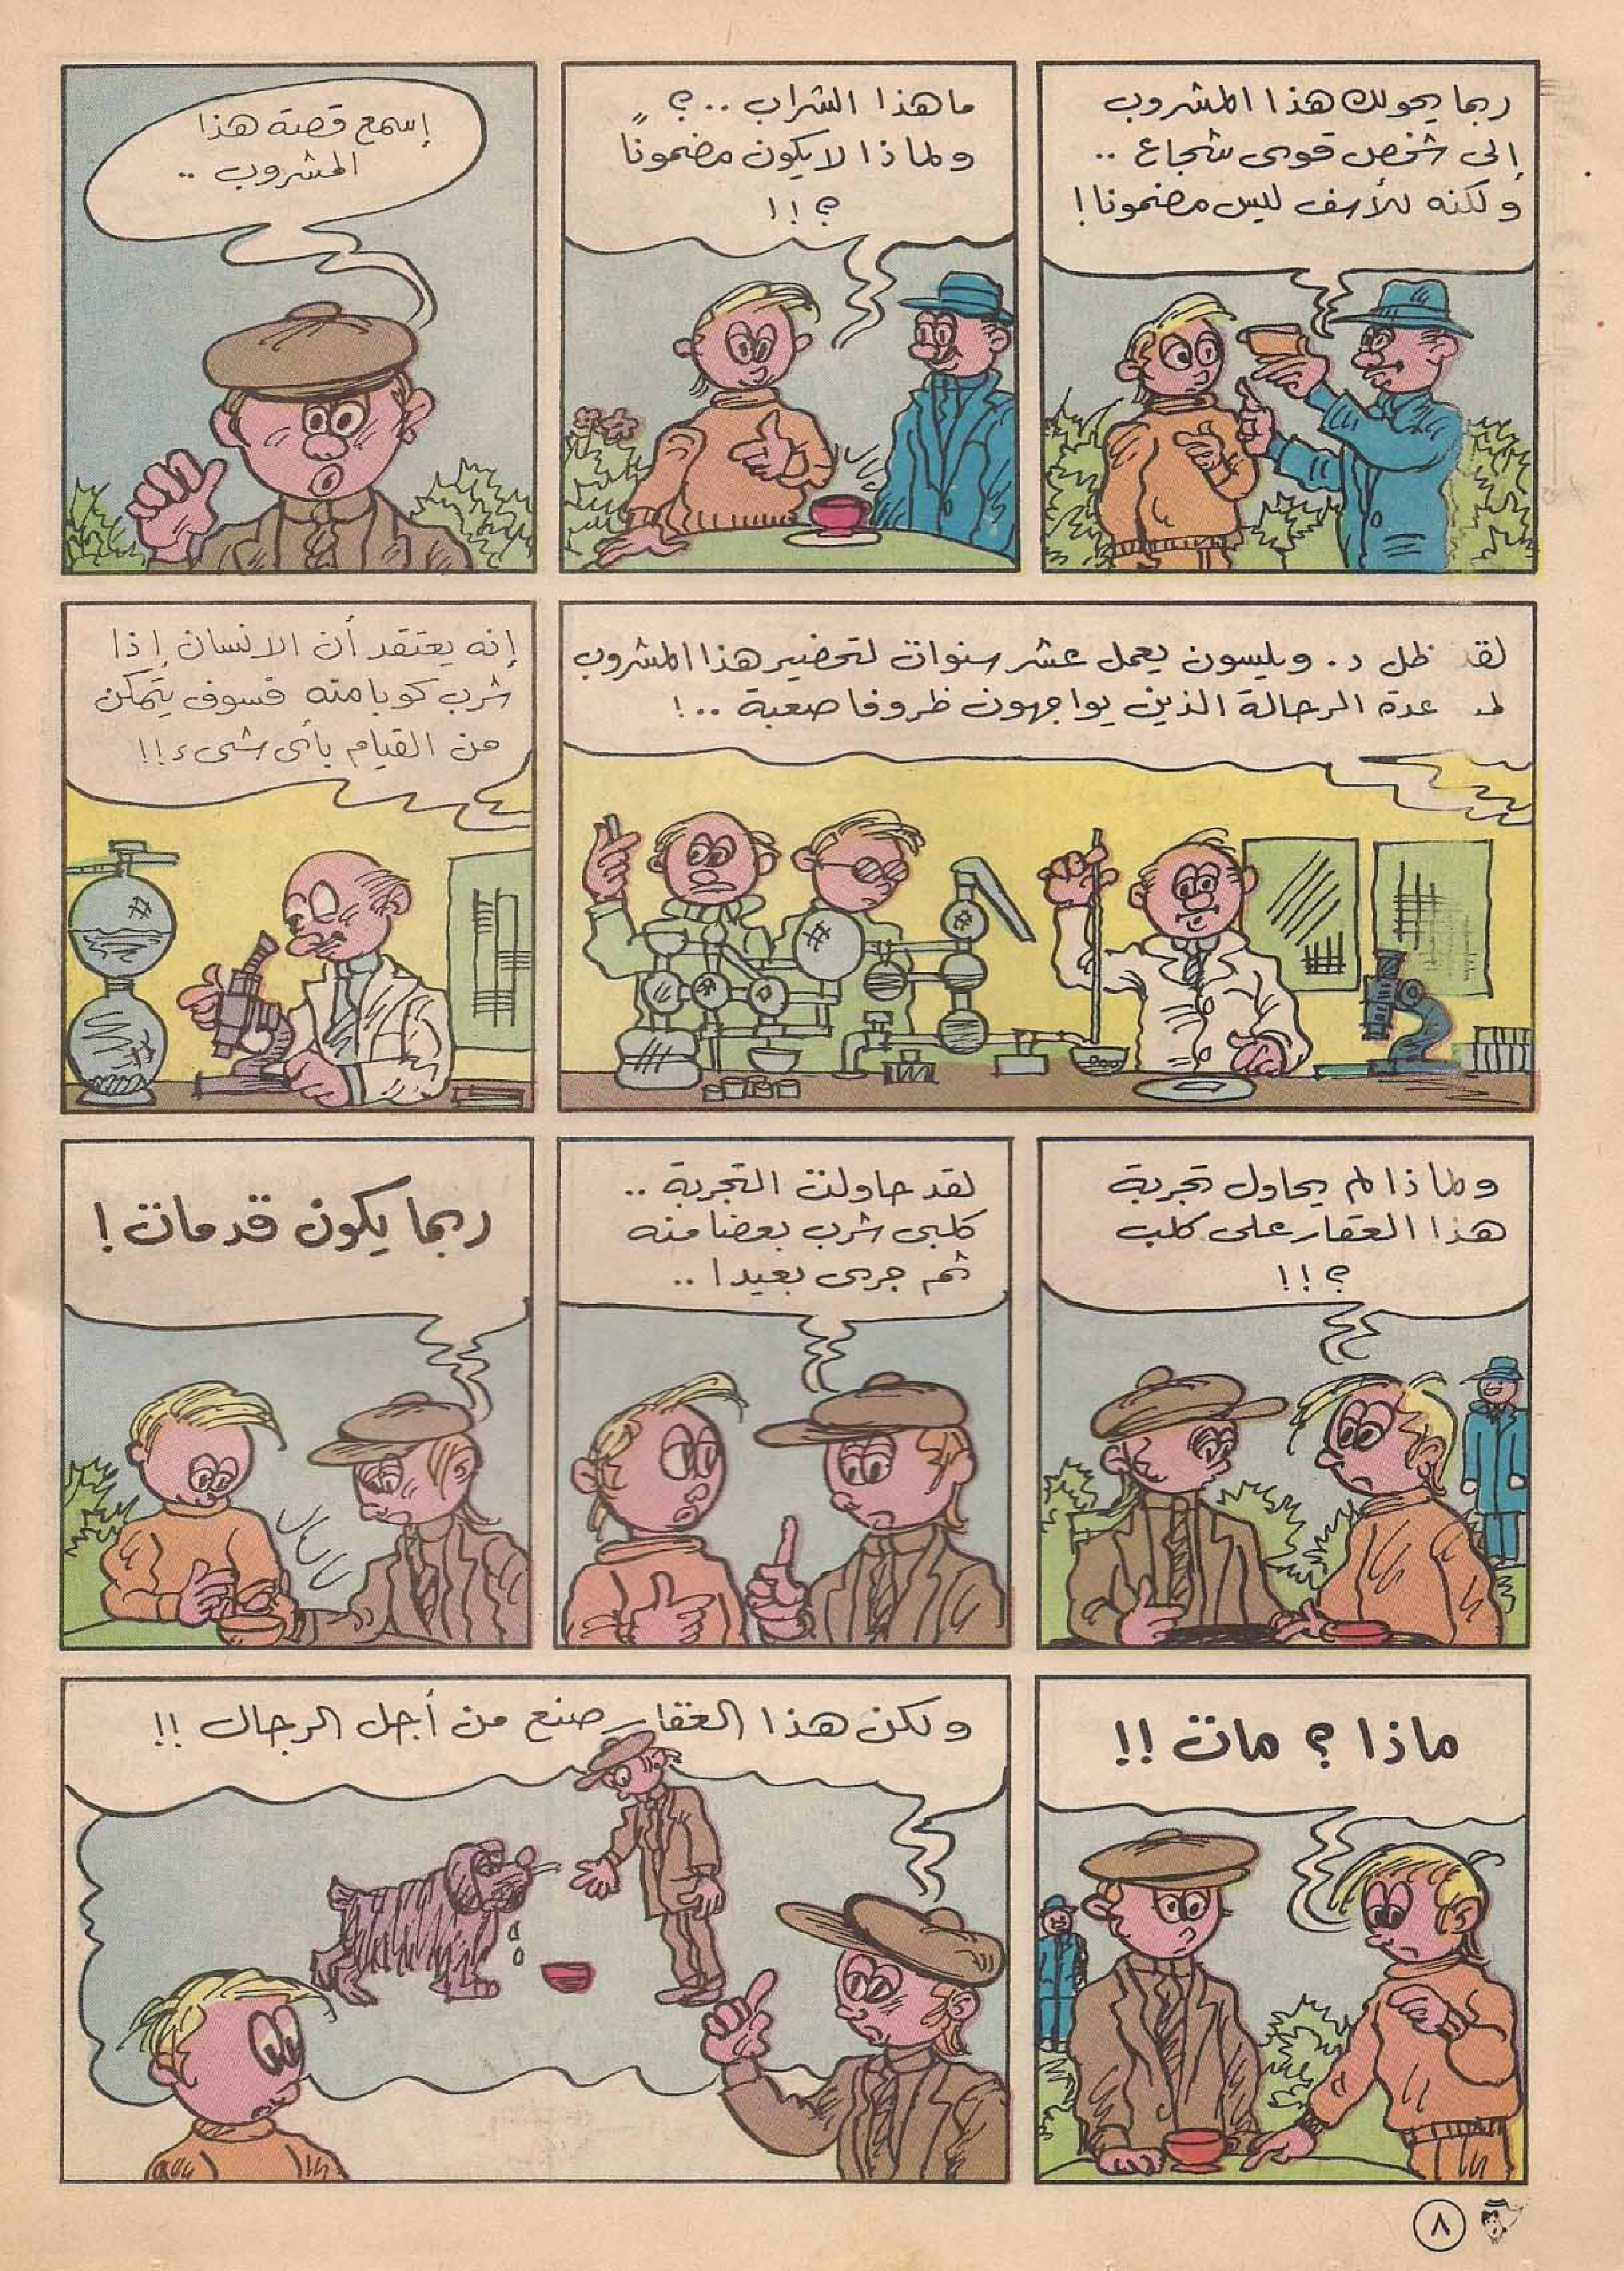 ربما يحولك هذا المشروب
إلى شخص قوى شجاع ..
ولكنه للأسف ليس مضمونا !
ما هذا الشراب ..؟
ولماذا لا يكون مضمونًا
؟!!
إسمع قصة هذا
المشروب ..
لقد ظل د. ويلسون يعمل عشر سنوات لتحضير هذا المشروب
عدة الرحالة الذين يواجهون ظروفا صعبة ..!
إنه يعتقد أن الانسان إذا
شرب كوبا منه فسوف يتمكن
من القيام بأى شىء !!
ولماذا لم يحاول تجربة
هذا العقار على كلب
؟!!
لقد حاولت التجربة ..
كلبى شرب بعضا منه
ثم جرى بعيدا ..
ربما يكون قد مات !
ماذا ؟ مات !!
ولكن هذا العقار صنع من أجل الرجال !!
٨